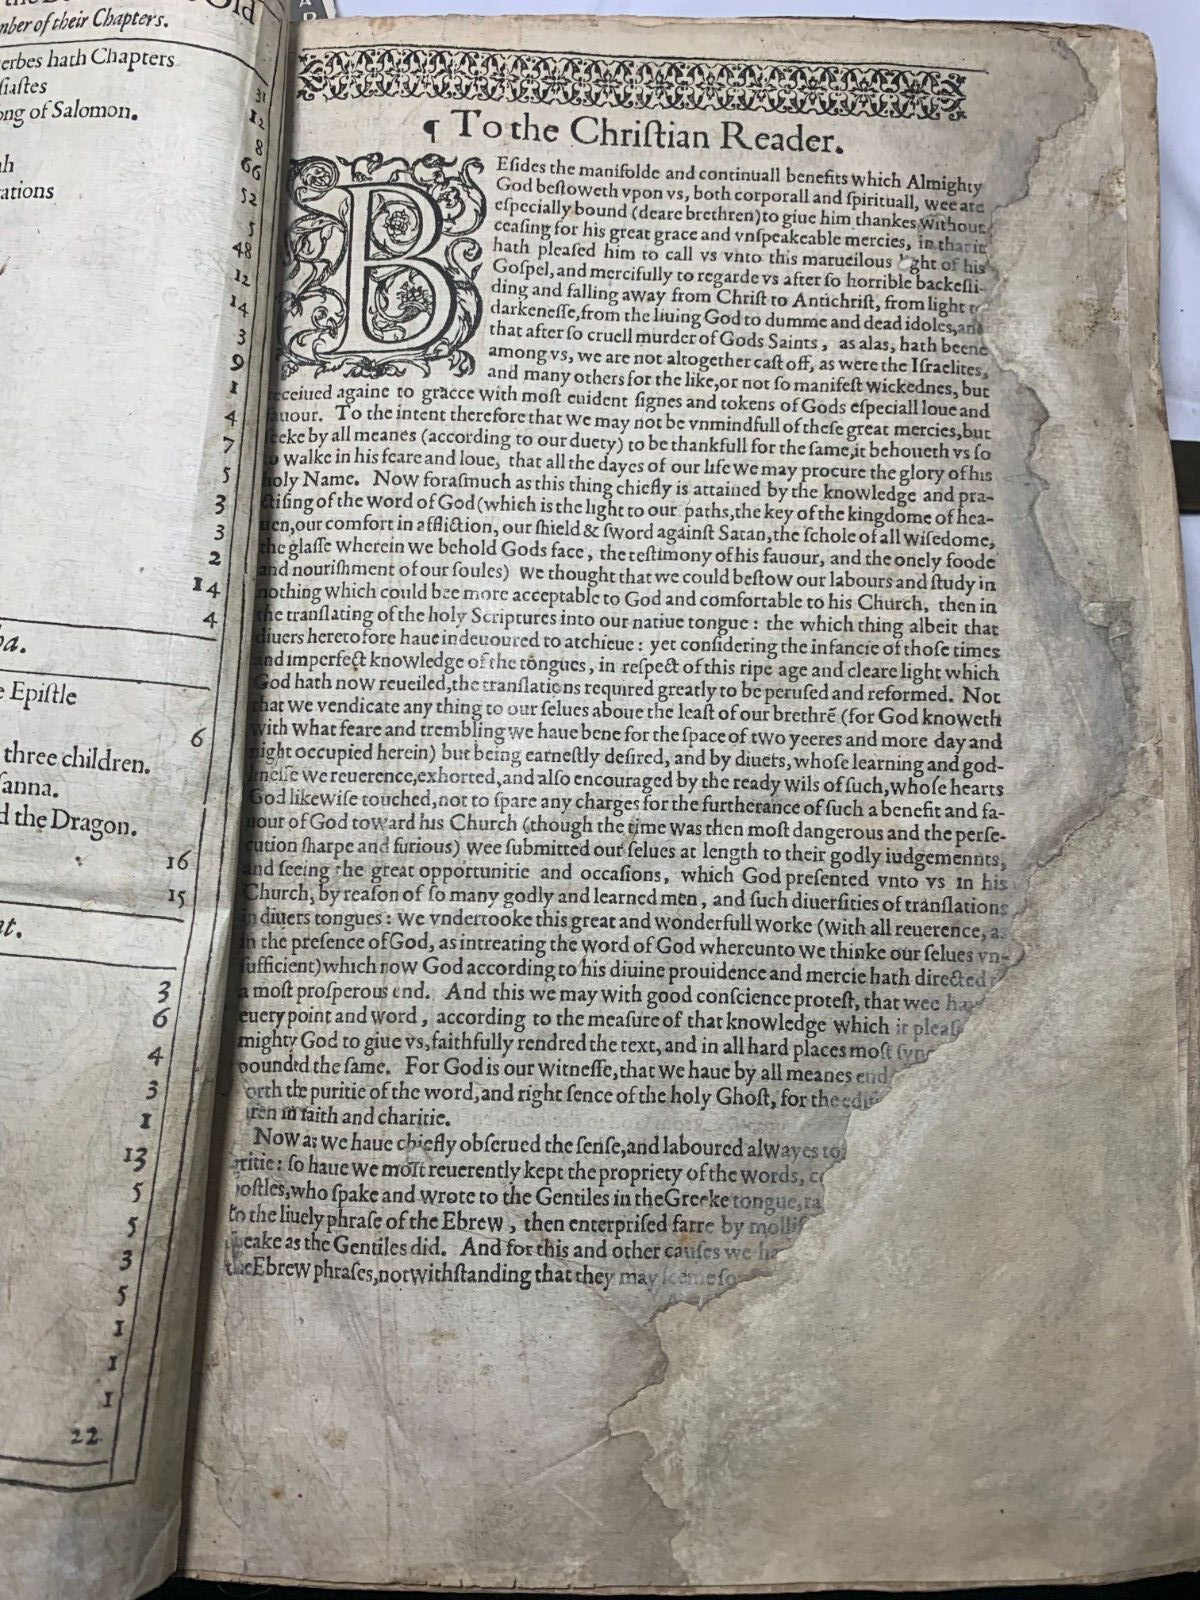 Old
mber of their Chapters.
erbes hath Chapters 31
siastes 12
ong of Salomon. 8
ah 66
tations 52
5
48
12
14
3
9
1
4
7
5
3
3
2
14
4
e Epistle
6
three children.
sanna.
d the Dragon.
16
15
nt.
3
6
4
3
1
13
5
5
3
5
1
1
1
22
¶ To the Christian Reader.
BEsides the manifolde and continuall benefits which Almighty
God bestoweth vpon vs, both corporall and spirituall, wee are
especially bound (deare brethren) to giue him thankes without
ceasing for his great grace and vnspeakeable mercies, in that it
hath pleased him to call vs vnto this marueilous light of his
Gospel, and mercifully to regarde vs after so horrible backesli-
ding and falling away from Christ to Antichrist, from light to
darkenesse, from the liuing God to dumme and dead idoles, and
that after so cruell murder of Gods Saints, as alas, hath beene
among vs, we are not altogether cast off, as were the Israelites,
and many others for the like, or not so manifest wickednes, but
receiued againe to gracce with most euident signes and tokens of Gods especiall loue and
fauour. To the intent therefore that we may not be vnmindfull of these great mercies, but
seeke by all meanes (according to our duety) to be thankfull for the same, it behoueth vs so
to walke in his feare and loue, that all the dayes of our life we may procure the glory of his
holy Name. Now forasmuch as this thing chiefly is attained by the knowledge and pra-
ctising of the word of God (which is the light to our paths, the key of the kingdome of hea-
uen, our comfort in affliction, our shield & sword against Satan, the schole of all wisedome,
the glasse wherein we behold Gods face, the testimony of his fauour, and the onely foode
and nourishment of our soules) we thought that we could bestow our labours and study in
nothing which could bee more acceptable to God and comfortable to his Church, then in
the translating of the holy Scriptures into our natiue tongue: the which thing albeit that
diuers heretofore haue indeuoured to atchieue: yet considering the infancie of those times
and imperfect knowledge of the tongues, in respect of this ripe age and cleare light which
God hath now reueiled, the translations required greatly to be perused and reformed. Not
that we vendicate any thing to our selues aboue the least of our brethrē (for God knoweth
with what feare and trembling we haue bene for the space of two yeeres and more day and
night occupied herein) but being earnestly desired, and by diuers, whose learning and god-
linesse we reuerence, exhorted, and also encouraged by the ready wils of such, whose hearts
God likewise touched, not to spare any charges for the furtherance of such a benefit and fa-
uour of God toward his Church (though the time was then most dangerous and the perse-
cution sharpe and furious) wee submitted our selues at length to their godly iudgements,
and seeing the great opportunitie and occasions, which God presented vnto vs in his
Church, by reason of so many godly and learned men, and such diuersities of translations
in diuers tongues: we vndertooke this great and wonderfull worke (with all reuerence, as
in the presence of God, as intreating the word of God whereunto we thinke our selues vn-
sufficient) which now God according to his diuine prouidence and mercie hath directed
a most prosperous end. And this we may with good conscience protest, that wee ha
euery point and word, according to the measure of that knowledge which it pleas
mighty God to giue vs, faithfully rendred the text, and in all hard places most syn
pounded the same. For God is our witnesse, that we haue by all meanes end
orth the puritie of the word, and right sence of the holy Ghost, for the edi
ren in faith and charitie.
Now as we haue chiefly obserued the sense, and laboured alwayes to
gritie: so haue we most reuerently kept the propriety of the words, c
postles, who spake and wrote to the Gentiles in the Greeke tongue, ra
to the liuely phrase of the Ebrew, then enterprised farre by mollif
speake as the Gentiles did. And for this and other causes we ha
the Ebrew phrases, notwithstanding that they may seeme so